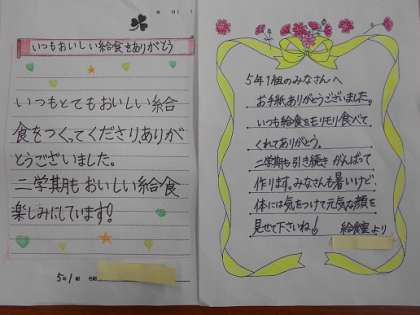 いつもおいしい給食をありがとう
いつもとてもおいしい給
食をつくってくださりありが
とうございました。
二学期もおいしい給食
楽しみにしています!
5年1組
5年1組のみなさんへ
お手紙ありがとうございました。
いつも給食をモリモリ食べて
くれてありがとう。
二学期も引き続きがんばって
作ります。みなさんも暑いけど、
体には気をつけて元気な顔を
見せて下さいね!
給食室より